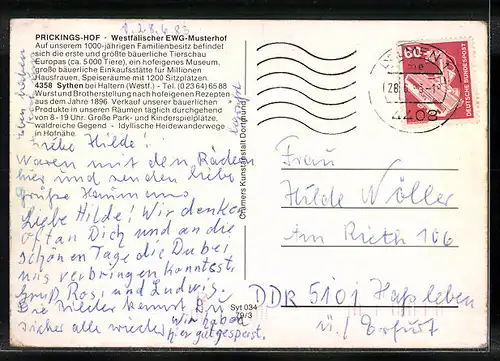 1.28.6.83
PRICKINGS-HOF - Westfälischer EWG-Musterhof
Auf unserem 1000-jährigen Familienbesitz befindet
sich die erste und größte bäuerliche Tierschau
Europas (ca. 5000 Tiere), ein hofeigenes Museum,
große bäuerliche Einkaufsstätte für Millionen
Hausfrauen. Speiseräume mit 1200 Sitzplätzen.
4358 Sythen bei Haltern (Westf.) - Tel. (0 23 64) 65 88
Wurst und Brotherstellung nach hofeigenen Rezepten
aus dem Jahre 1896. Verkauf unserer bäuerlichen
Produkte in unseren Räumen täglich durchgehend
von 8 - 19 Uhr. Große Park- und Kinderspielplätze,
waldreiche Gegend - Idyllische Heidewanderwege
in Hofnähe.
Liebe Hilde!
Waren mit den Rädern
hier und senden liebe
Grüße
Liebe Hilde! Wir denken
oft an Dich und an die
schönen Tage die Du bei
uns verbringen konntest.
Gruß Rosi und Ludwig.
Die Bilder kennst Du
sicher alle wieder. Wir haben
hier gut gespeist.
Cramers Kunstanstalt Dortmund
Syt 034
79/3
60
DEUTSCHE BUNDESPOST
28
4408
Frau
Hilde Nöller
Am Rieth 106
DDR 5101 Haßleben
ü./Erfurt